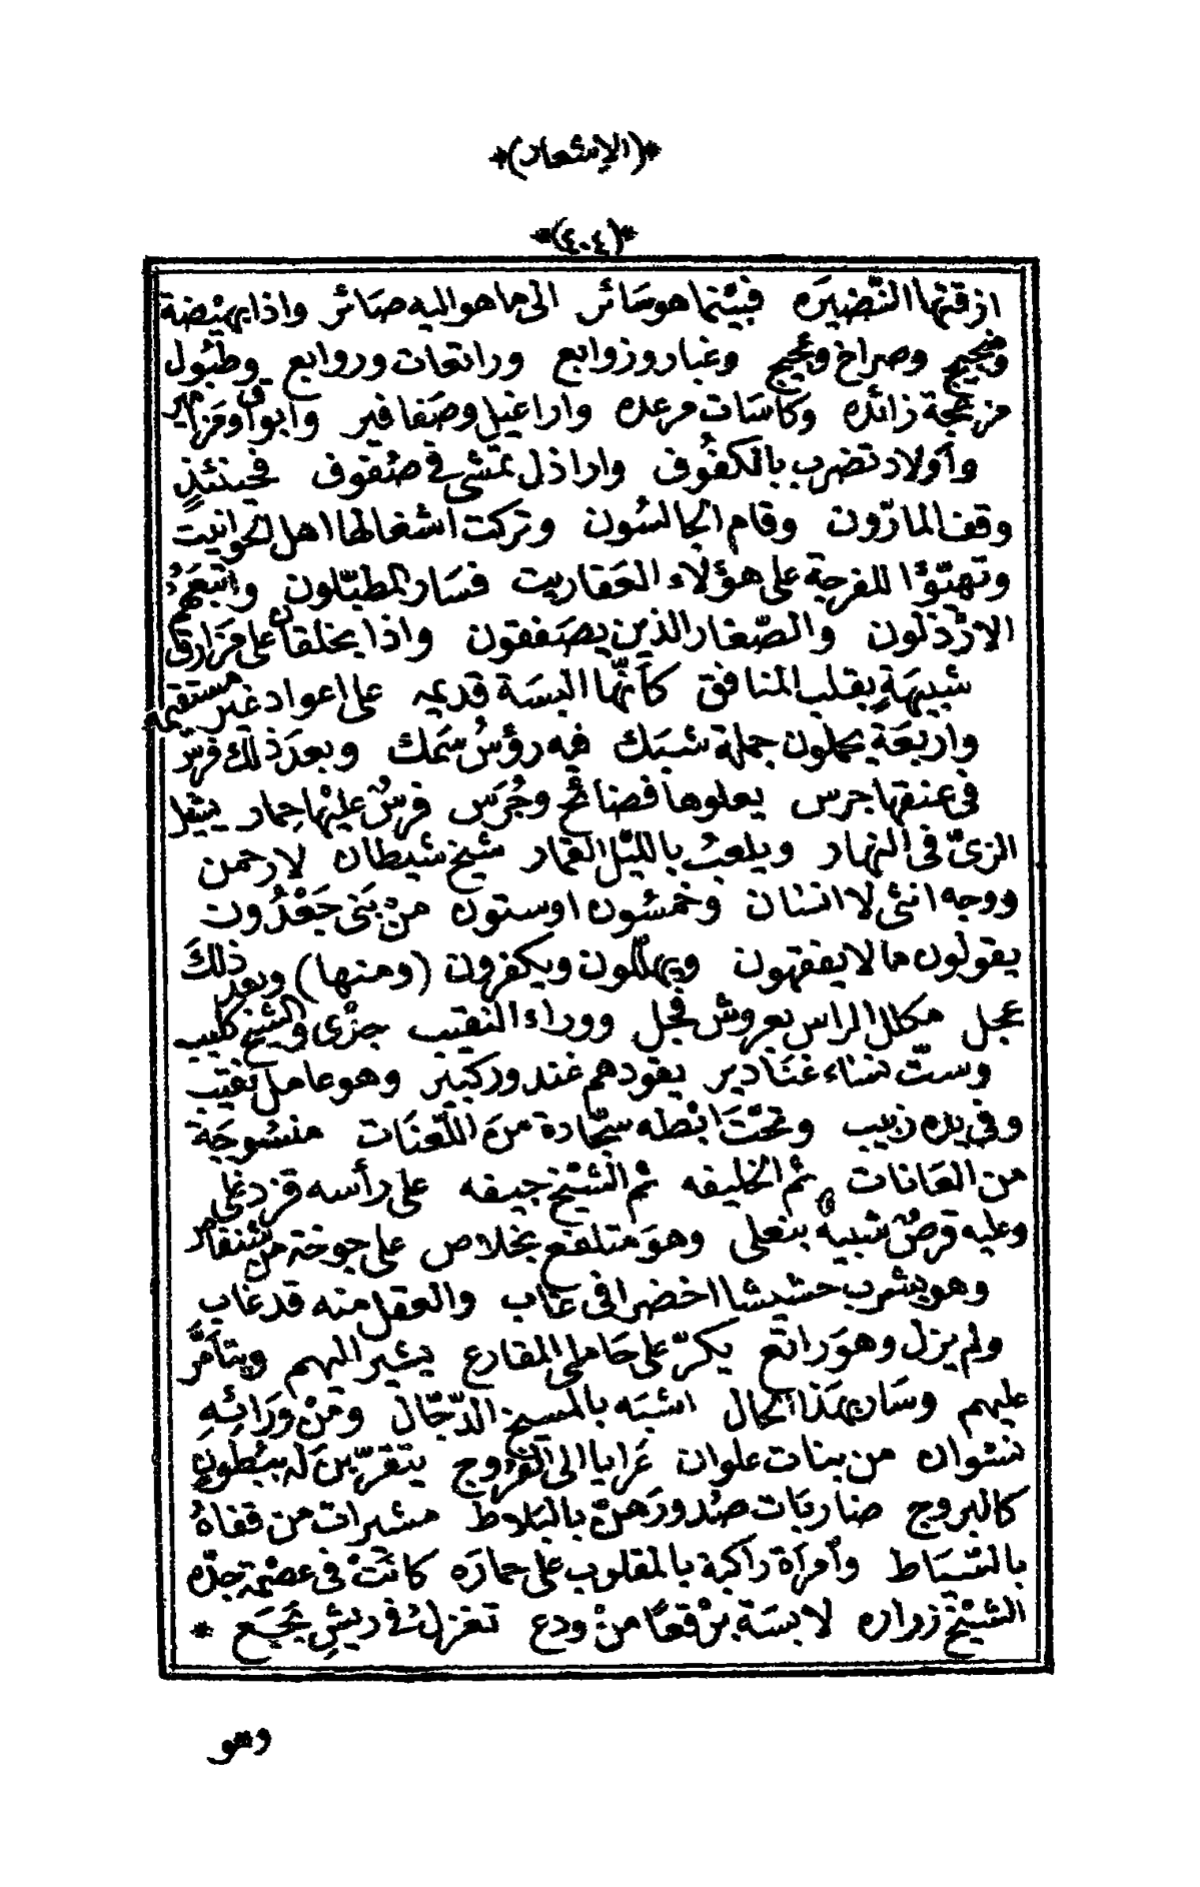 *(الإشعار)*
*(٤٠٤)*
ازقتها النّضيره فبيْنما هو سَائر الى ما هو اليه صَائر واذا بهيْضة
وضجيج وصراخ وعجيج وغبار وزوابع ورائعات وروابع وطبُول
مزعجة زائده وكاسَات مرعده واراغيل وصَفافير وابواق ومَزامير
وأولاد تضرب بالكفُوف واراذل تمشى فى صُفوف فحينئذٍ
وقف المارّون وقام الجالسُون وتركت اشغالها اهل الحوانيت
وتهيّؤا للفرجة على هؤلاء العَفاريت فسَار المطبّلون واتبعَهُمُ
الارْذلون والصّغار الذين يصَفقون واذا بخلقان على مَزارق
شبيهَةٍ بقلب المنافق كأنّها البسَة قديمه على اعواد غير مستقيمه
واربعَة يحملون جملة شبَك فيه رؤسُ سَمك وبعدَ ذلك فرسٌ
فى عنقها جرس يعلوها فضائحٌ وجُرَس فرسٌ عليْها حِمار يثيل
الزىّ فى النهار ويلعبُ بالليْل القمار شيخ شيطان لا رحمن
ووجه انثى لا انسَان وخمسُون اوستون منْ بَنى جَعْدُون
يقولون ما لا يفقهون ويهلّلون ويكفرون (ومنها) وبعد ذلكَ
عجل مكلل الراس بعروش فجل ووراء النقيب جزْى والشيخ كليب
وستّ نسَاء غنَادير يقودهم غندور كبير وهو عامل نقيب
وفى يده زبيب وتحْتَ ابْطه سجّادة منَ اللّعنَات منسُوجَة
من العَانات ثم الخليفه ثم الشيْخ جيفه على رأسه قزدغلى
وعليه قرصٌ شبيهٌ بنعلى وهوَ متلفع بخلاص على جوخة من شنقار
وهو يشرب حشيشا اخضرا فى غاب والعقل منه قد غاب
ولم يزل وهوَ راتع يكرّ على حَاملى المقارع يشير اليهم ويتأمَّر
عليهم وسَار بهَذا الحَال اشبَه بالمسيخ الدّجّال ومنْ ورَائِهِ
نسْوان من بنات علوان عَرايا الى الفُروج يتقرّبن لَه ببُطونٍ
كالبروج ضاربَات صُدورَهنّ بالبَلاط مشيرات من قفاهُ
بالسّيَاط وأمرأة راكبة بالمقلوب على حمارَه كانَتْ فى عصْمَة جدّه
الشيْخ زواره لابسَة برْقعًا منْ ودع تغزلُ فى ريْشِ بَجَع *
وهو